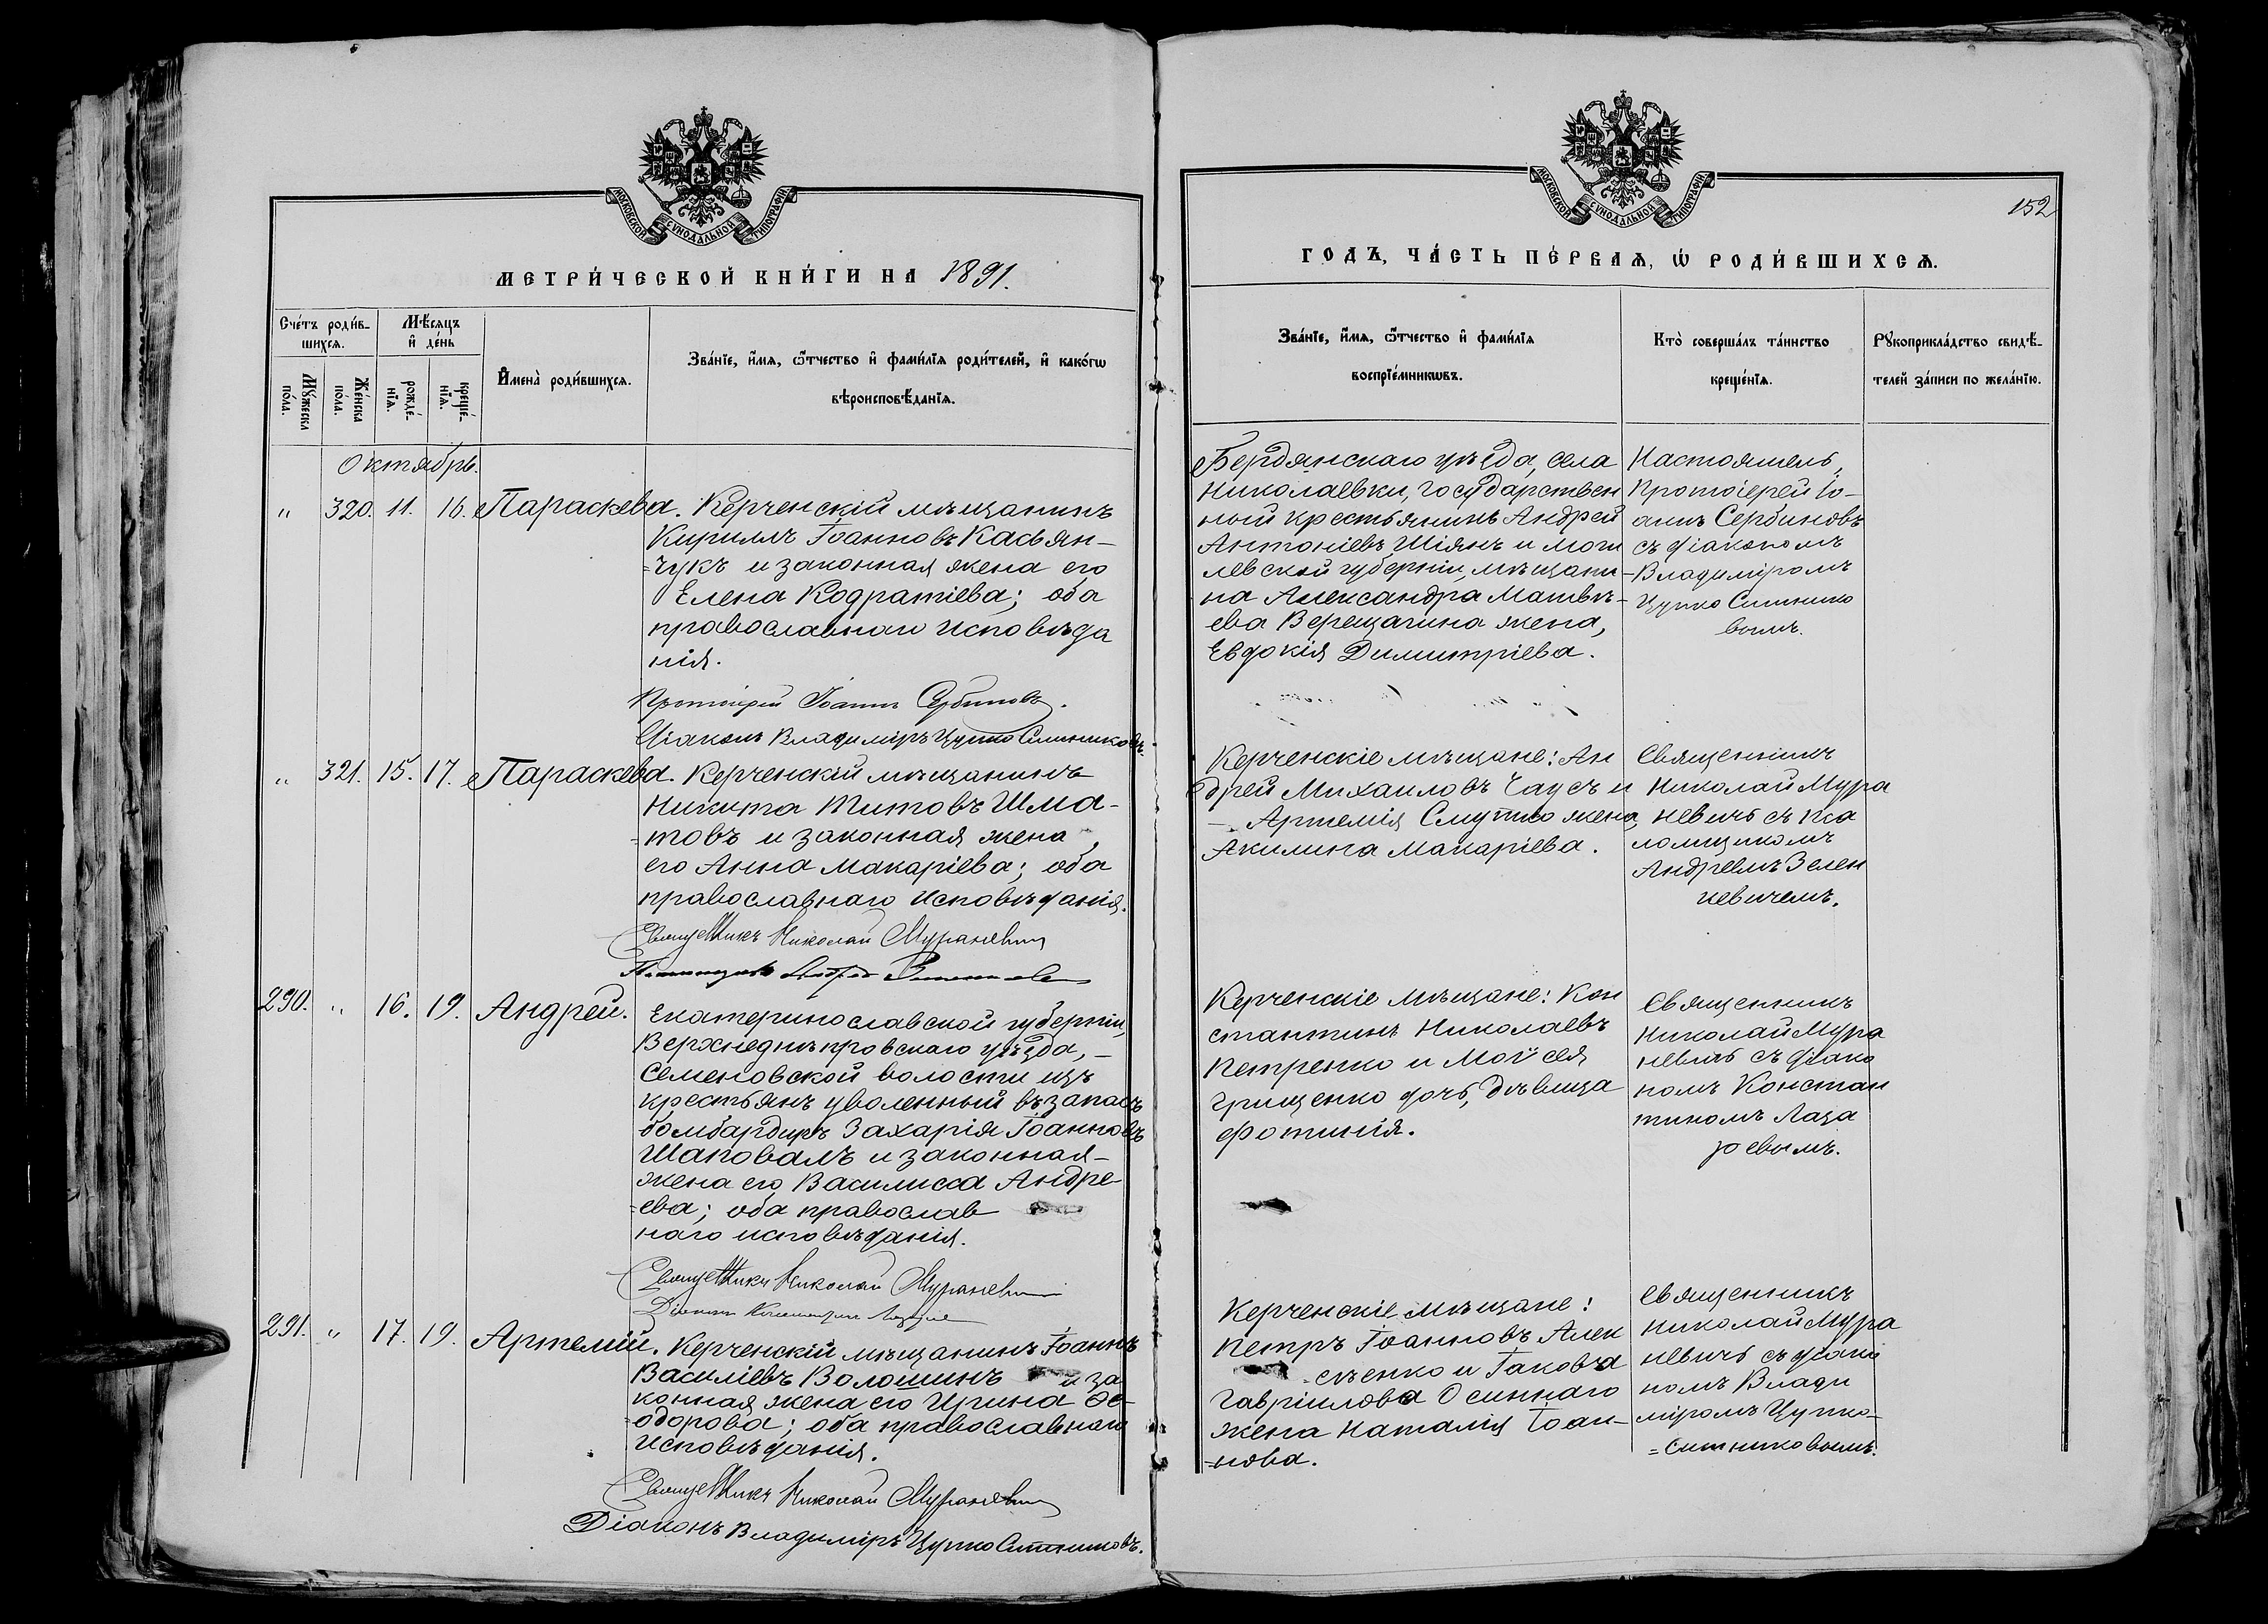 МОСКОВСКОЙ СУНОДАЛЬНОЙ ТИПОГРАФІИ
МЕТРИ́ЧЕСКОЙ КНИ́ГИ НА 1891.
Сче́тъ роди́в-
шихся.
Мѣ́сяцъ
и҆ де́нь
И҆мена̀ роди́вшихся.
Зва́нїе, и҆́мя, ѻ҆́тчество и҆ фами́лїя роди́телей, и҆ како́гѡ
вѣроисповѣ́данїя.
Мꙋ́жеска
по́ла.
Же́нска
по́ла.
рожде́-
нїя.
креще́-
нїя.
Октябрь.
" 320. 11. 16. Параскева. Керченскій мѣщанинъ
Кириллъ Іоанновъ Касьян-
=чукъ и законная жена его
Елена Кодратіева; оба
православнаго исповѣда
нія.
Протоіерей Іоаннъ Сербиновъ.
Діаконъ Владиміръ Цупко Ситниковъ.
" 321. 15. 17. Параскева. Керченскій мѣщанинъ
Никита Титовъ Шма-
=товъ и законная жена
его Анна Макаріева; оба
православнаго исповѣданія.
Священникъ Николай Мураневичъ
290. " 16. 19. Андрей. Екатеринославской губерніи,
Верхнеднѣпровскаго уѣзда, -
Семеновской волости изъ
крестьянъ уволенный въ запасъ
бомбардиръ Захарія Іоанновъ
Шаповалъ и законная-
жена его Василисса Андре-
=ева; оба православ
наго исповѣданія.
Священникъ Николай Мураневичъ
Діаконъ Константинъ
291. " 17. 19. Артемій. Керченскій мѣщанинъ Іоаннъ
Василіевъ Волошинъ и за
конная жена его Ирина Ѳе-
=одорова; оба православнаго
исповѣданія.
Священникъ Николай Мураневичъ
Діаконъ Владиміръ Цупко Ситниковъ.
МОСКОВСКОЙ СУНОДАЛЬНОЙ ТИПОГРАФІИ
152
ГОДЪ, ЧА́СТЬ ПЕ́РВАЯ, Ѡ҆ РОДИ́ВШИХСЯ.
Зва́нїе, и҆́мя, ѻ҆́тчество и҆ фами́лїя
воспрїе́мникѡвъ.
Кто̀ соверша́лъ та́инство
креще́нїя.
Рꙋкоприкла́дство свидѣ́-
телей за́писи по жела́нїю.
Бердянскаго уѣзда, села
Николаевки, государствен
ный крестьянинъ Андрей
Антоніевъ Шіянъ и Моги
левской губерніи, мѣщани-
на Александра Матвѣ-
ева Верещагина жена,
Евдокія Димитріева.
Настоятель,
Протоіерей Іо-
аннъ Сербиновъ
съ діакономъ
Владиміромъ
Цупко Ситнико
вымъ.
Керченскіе мѣщане: Ан
дрей Михаиловъ Чаусъ и
- Артемія Смутко жена,
Акилина Макаріева.
Священникъ
Николай Мура
невичъ съ пса
ломщикомъ
Андреемъ Зелен
кевичемъ.
Керченскіе мѣщане: Кон
стантинъ Николаевъ
Петренко и Моѵсея
Грищенко дочь, дѣвица
Фотинія.
Священникъ
Николай Мура
невичъ съ діако
номъ Констан
тиномъ Лаза
ревымъ.
Керченскіе мѣщане:
Петръ Іоанновъ Алек
сѣенко и Іакова
Гавріилова Осиннаго
жена Наталія Іоан-
=нова.
Священникъ
Николай Мура
невичъ съ діако
номъ Влади
міромъ Цупко-
=Ситниковымъ.